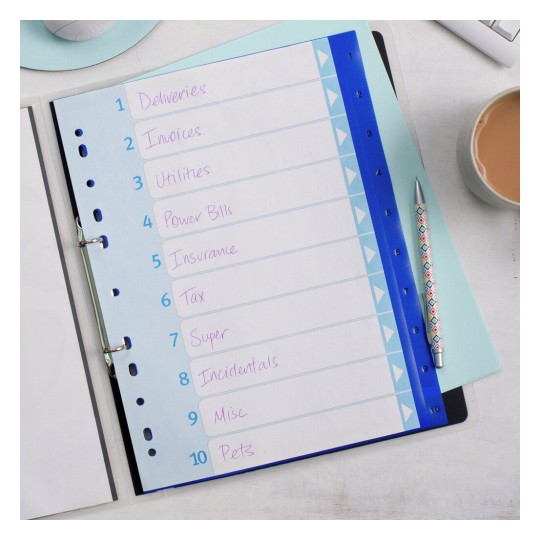 1 Deliveries
2 Invoices
3 Utilities
4 Power Bills
5 Insurance
6 Tax
7 Super
8 Incidentals
9 Misc
10 Pets